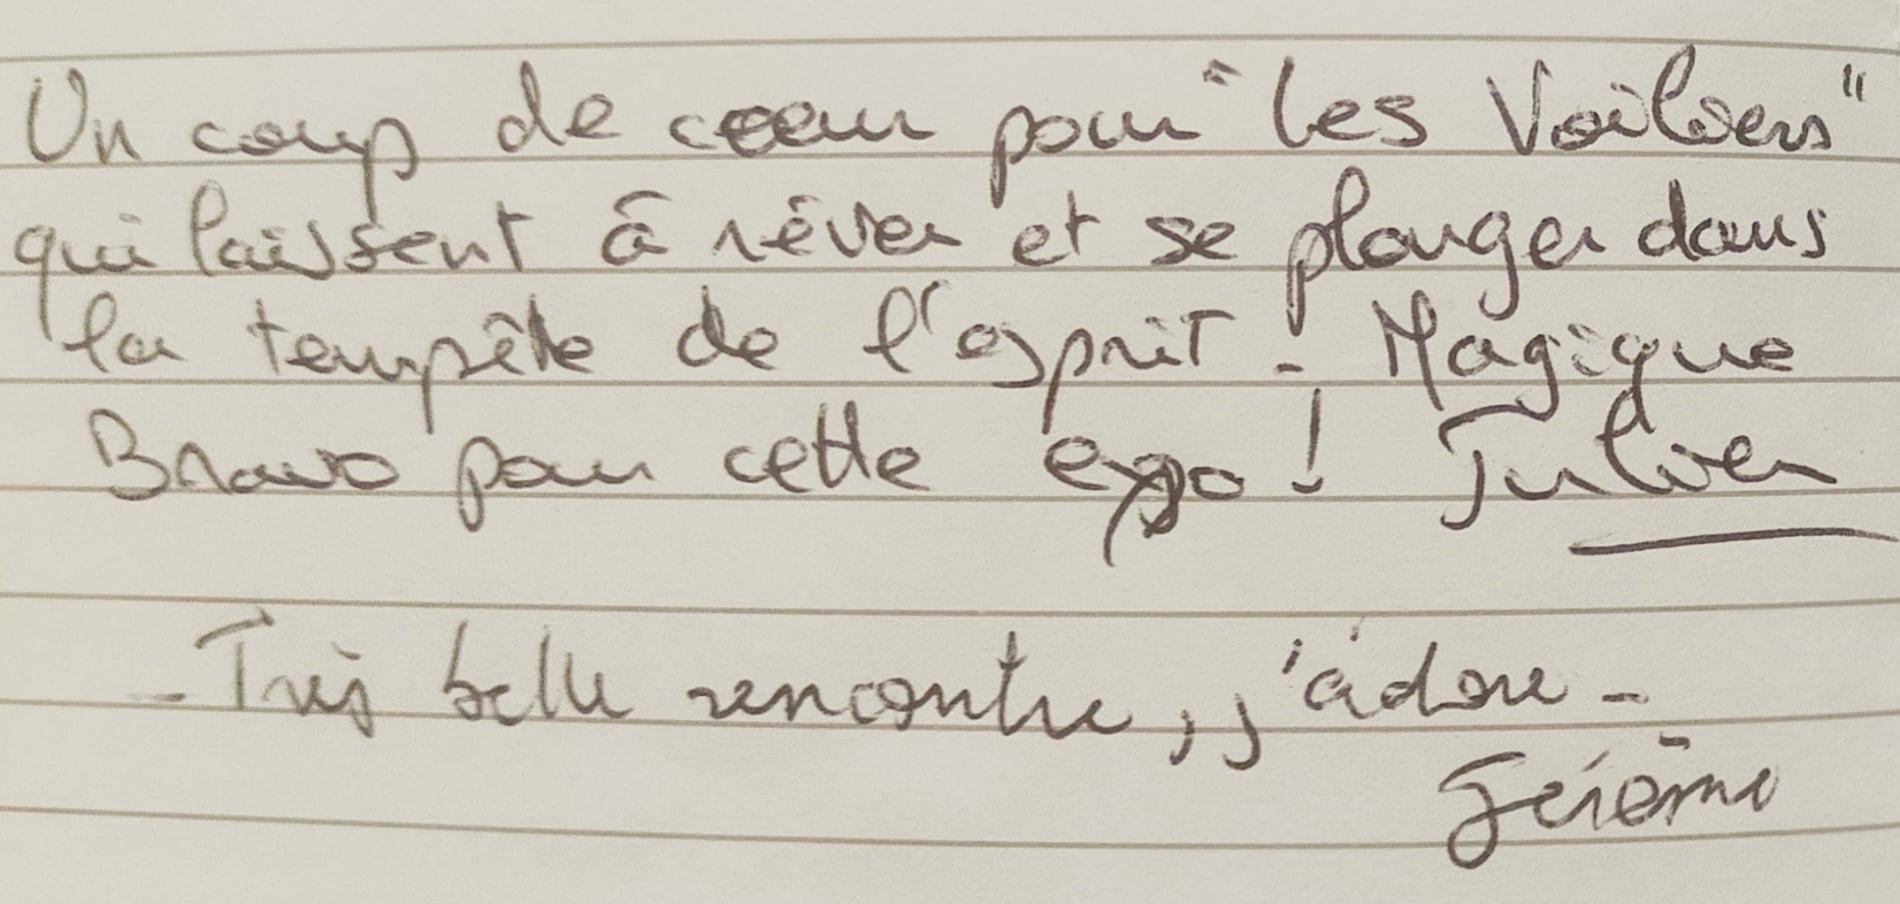 Un coup de coeur pour "les Voiliers"
qui laissent à rêver et se plonger dans
la tempête de l'esprit. Magique
Bravo pour cette expo ! Julien
- Très belle rencontre, j'adore -
Jérôme